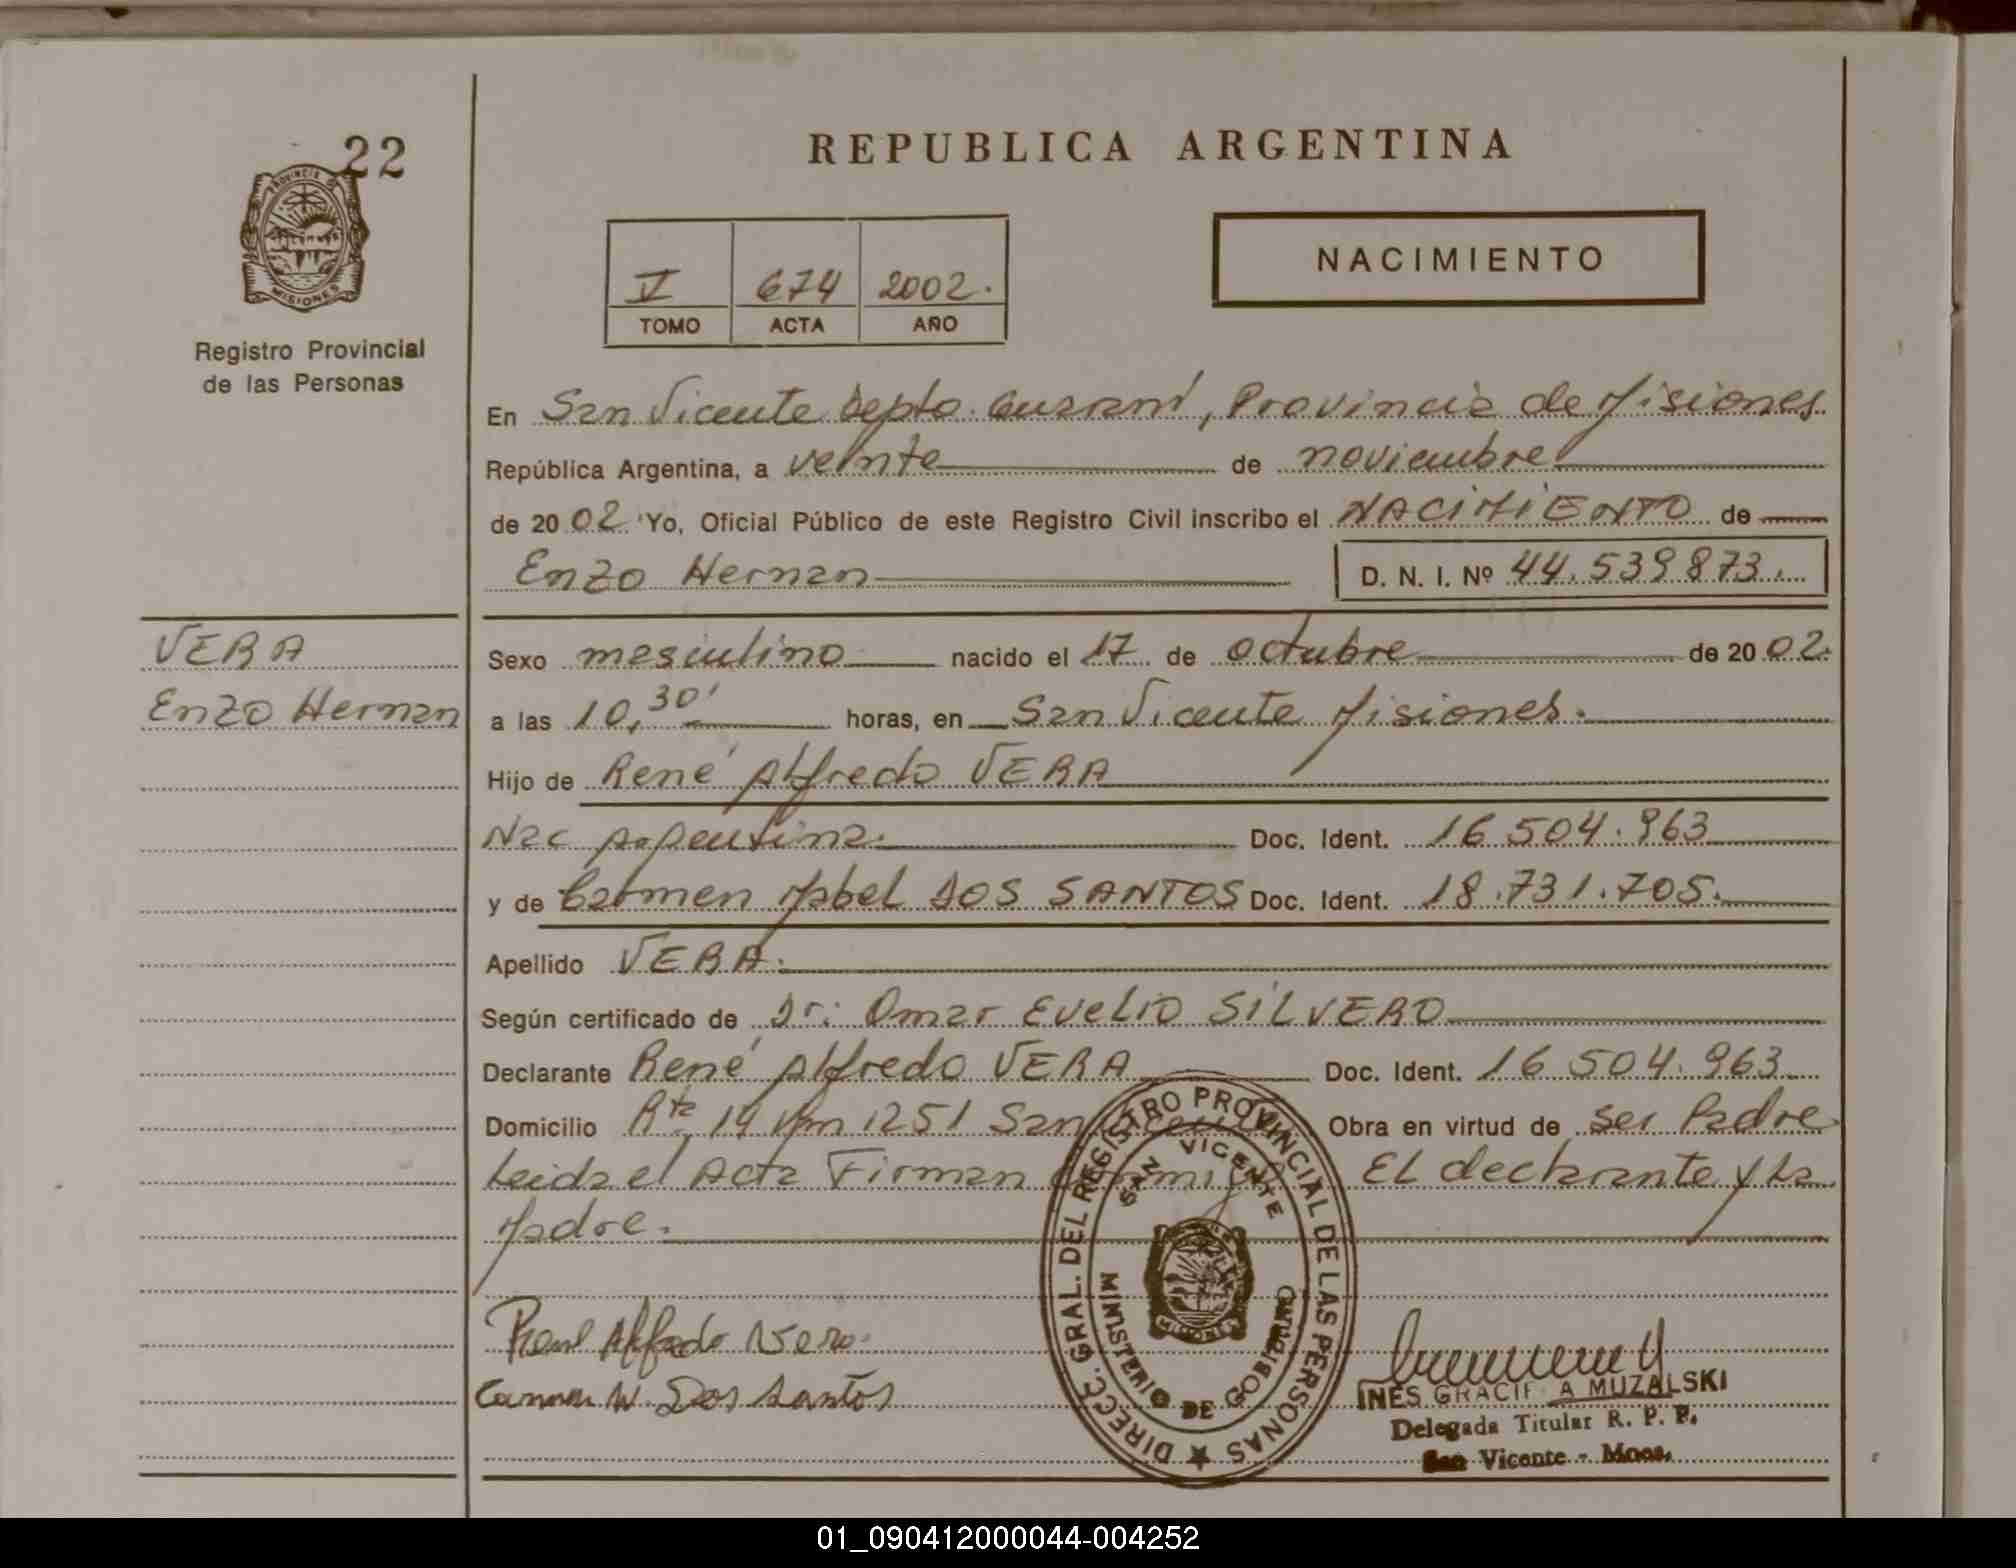 22
PROVINCIA DE
MISIONES
Registro Provincial
de las Personas
REPUBLICA ARGENTINA
V 674 2002.
TOMO ACTA AÑO
NACIMIENTO
En San Vicente Depto. Guaraní, Provincia de Misiones
República Argentina, a veinte de noviembre
de 2002 Yo, Oficial Público de este Registro Civil inscribo el NACIMIENTO de
Enzo Hernan D. N. I. Nº 44.539873.
VERA
Enzo Hernan
Sexo masculino nacido el 17 de octubre de 2002.
a las 10,30' horas, en San Vicente Misiones.
Hijo de René Alfredo VERA
Nac Argentina. Doc. Ident. 16 504.963
y de Carmen Mabel DOS SANTOS Doc. Ident. 18.731.705.
Apellido VERA.
Según certificado de Dr: Omar Evelio SILVERO
Declarante René Alfredo VERA Doc. Ident. 16 504.963
Domicilio Rta 14 Km 1251 San Vicente Obra en virtud de ser Padre
Leida el Acta Firman conmigo EL declarante y La
Madre.
René Alfredo Vera
Carmen M. Dos Santos
DIRECC. GRAL. DEL REGISTRO PROVINCIAL DE LAS PERSONAS
SAN VICENTE
MISIONES
MINISTERIO DE GOBIERNO
INES GRACIELA MUZALSKI
Delegada Titular R. P. P.
San Vicente - Mnes.
01_090412000044-004252